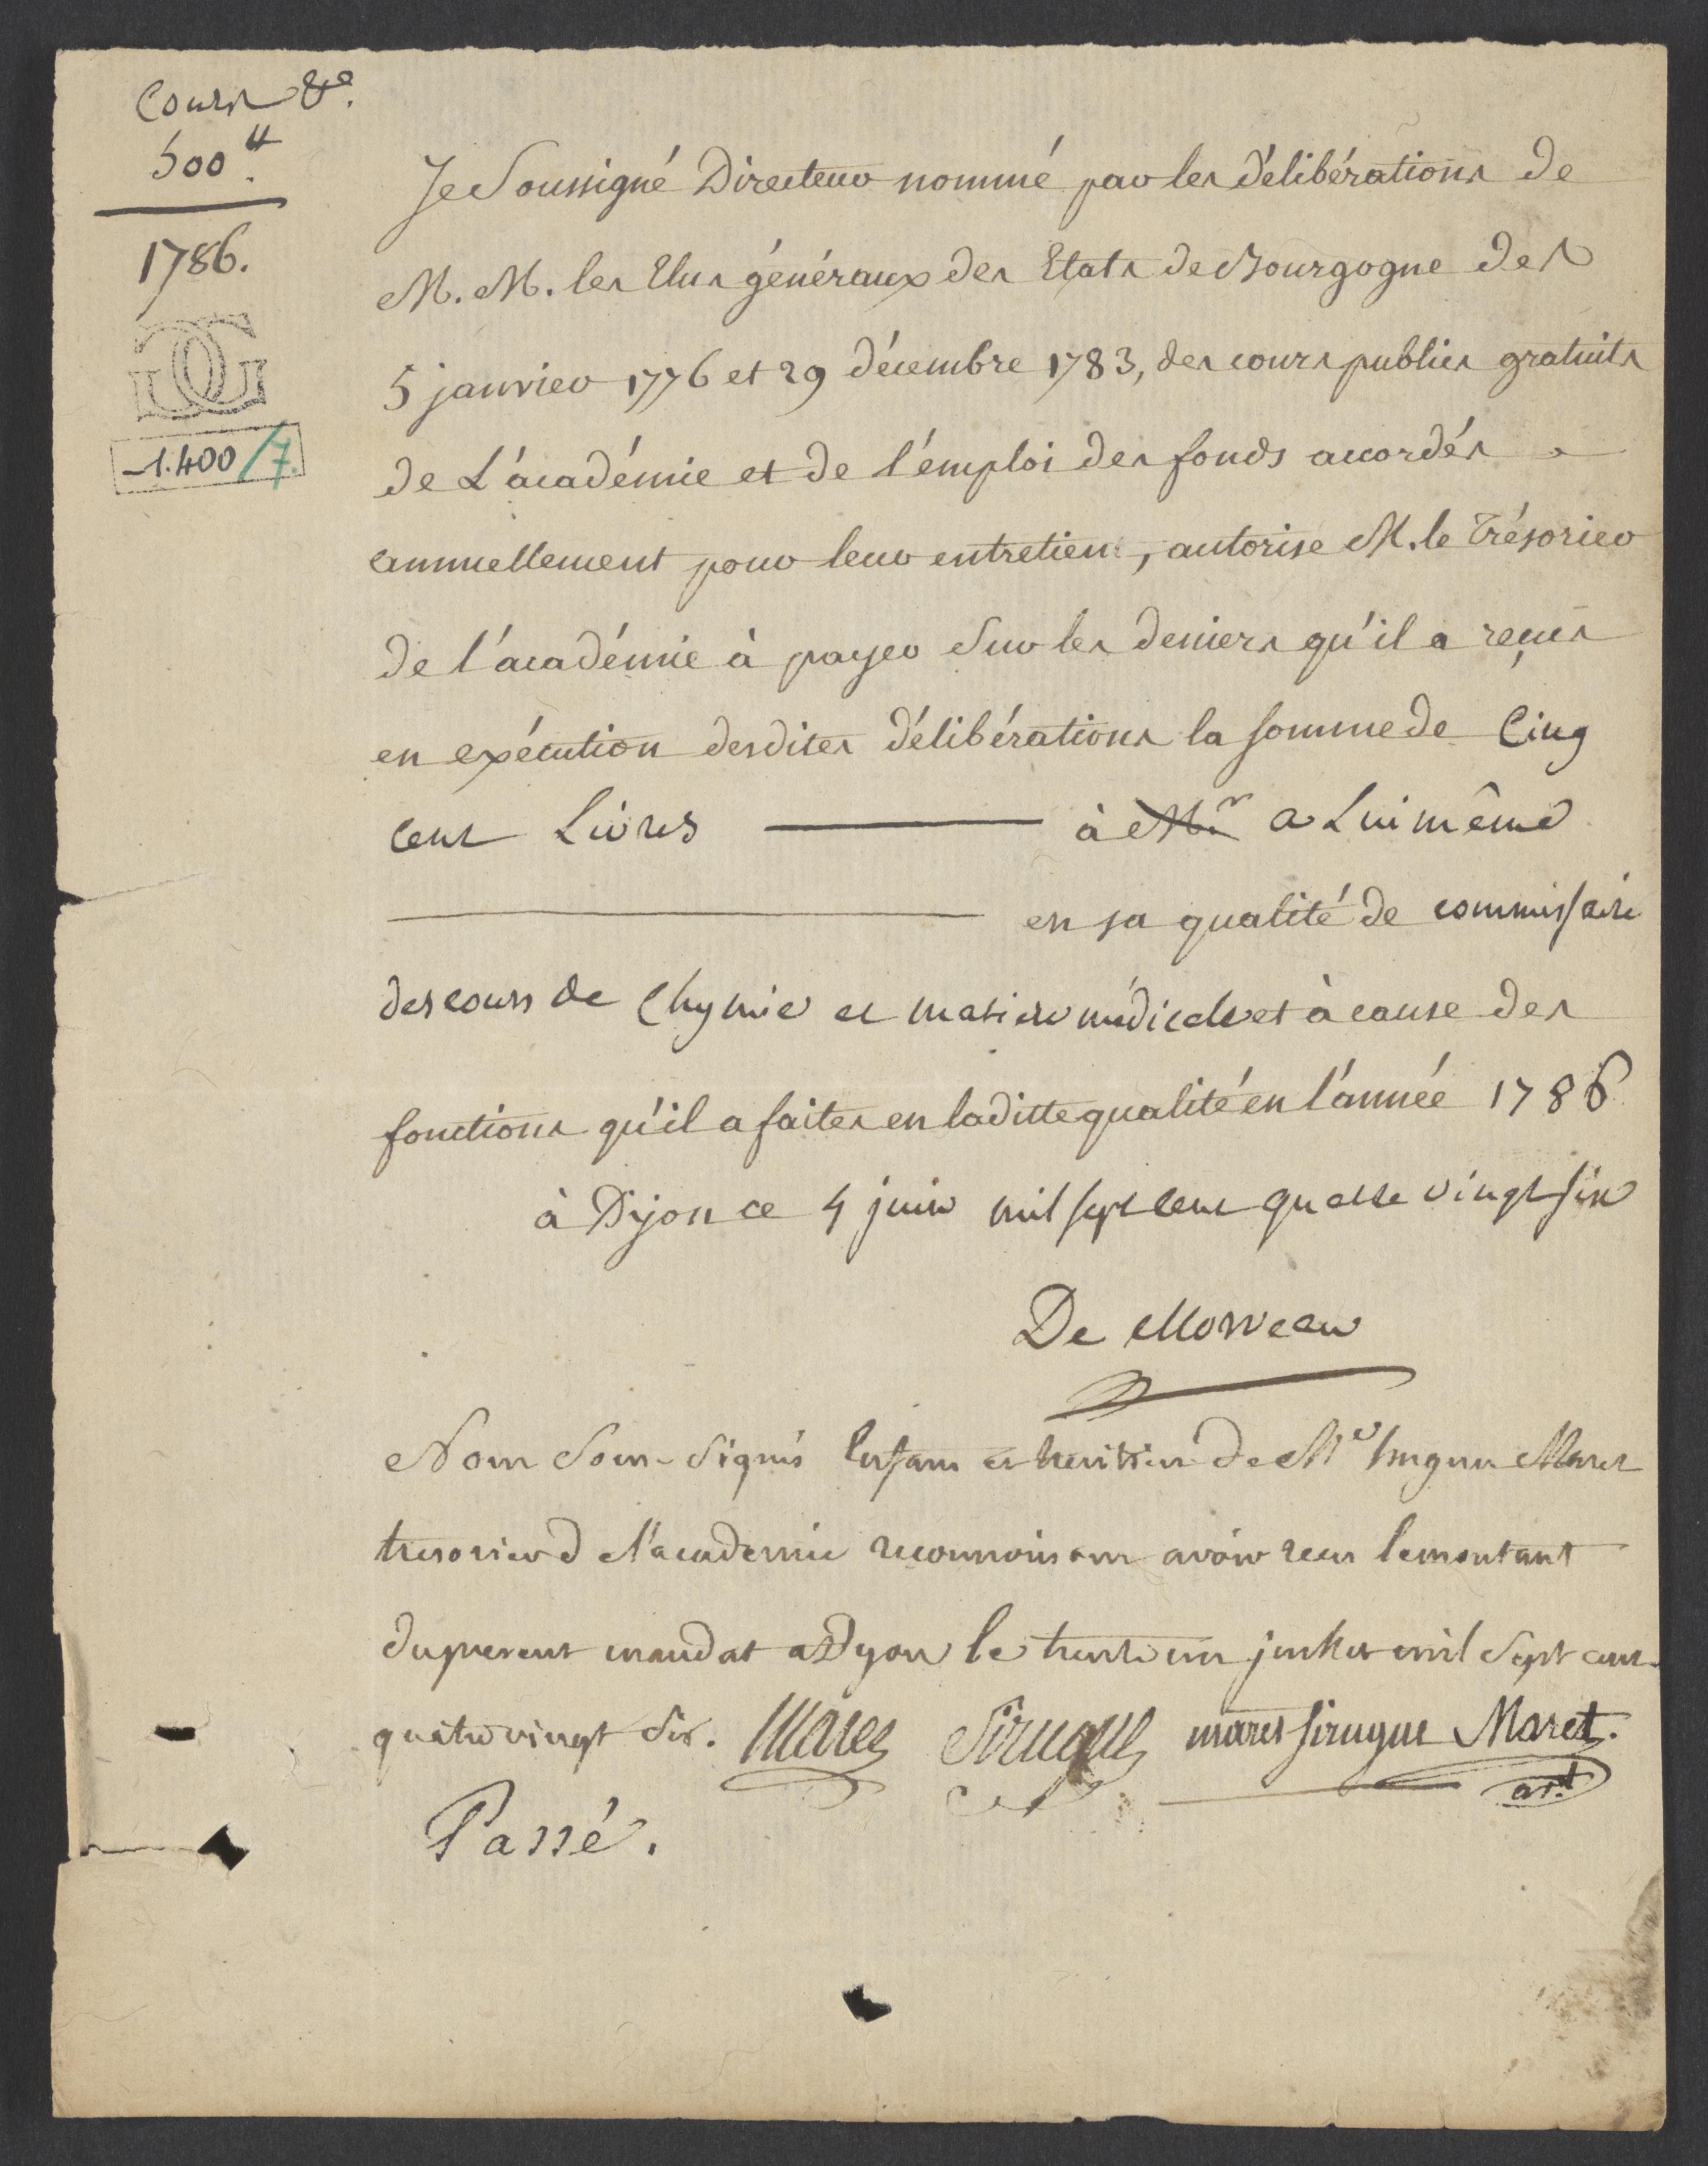 Cours &a.
500 ₶.
1786.
GG
1.400/7.
Je Soussigné Directeur nommé par les délibérations de
M. M. les Elus généraux des Etats de Bourgogne des
5 janvier 1776 et 29 décembre 1783, des cours publics gratuits
de L'académie et de l'émploi des fonds accordés
annuellement pour leur entretien, autorise M. le Trésorier
de l'académie à payer Sur les deniers qu'il a reçus
en exécution desdites délibérations la somme de Cinq
cent Livres à Mr a Lui même
en sa qualité de commissaire
des cours de Chymie et matiere médicale et à cause des
fonctions qu'il a faites en laditte qualité en l'année 1786
à Dijon ce 4 juin mil sept cent quatre vingt six
De Morveau
Nous Sous-Signés Enfans et heritiers de Me hugues Maret
tresorier de l'academie reconnoissons avoir recu le montant
du present mandat a Dyon le trente un juillet mil Sept cent
quatre vingt Six. Maret Sirugue maret sirugue Maret.
art
Passé.